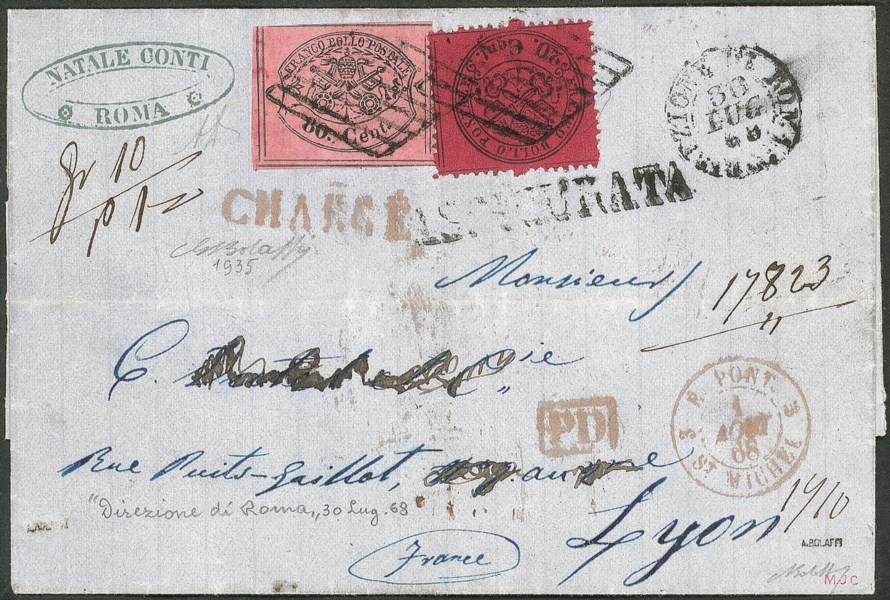 NATALE CONTI
ROMA
FRANCO BOLLO POSTALE
80. Cent.
FRANCO BOLLO POSTALE
20. Cent.
DIREZIONE DI ROMA
30
LUG
68
gr 10
CHARGÉ
ASSICURATA
Bolaffi
1935
Monsieur
17823
C.
& Cie
P. PONT.
1
AOUT
68
ST MICHEL
PD
Rue Puits-Gaillot,
"Direzione di Roma„ 30 Lug. 68
Lyon
A.BOLAFFI
France
MJC